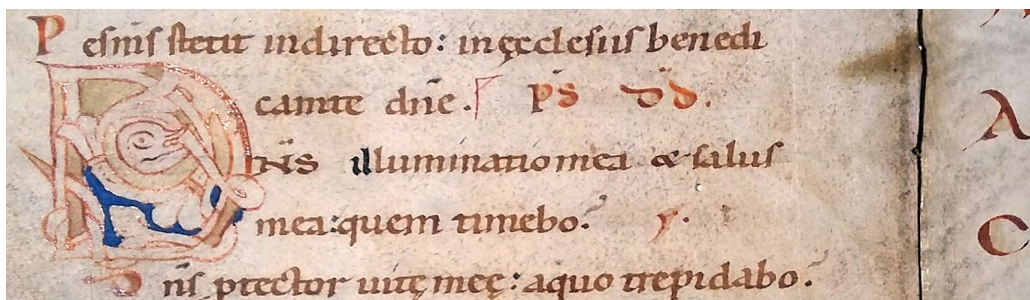 Pes m̄s stetit indirecto: inęcclesiis benedi
camte dn̄e. PS̄ DD̄.
DN̄S illuminatio mea & salus
mea: quem timebo?
Dn̄s ꝓtector uitę meę: aquo trepidabo?
A
C